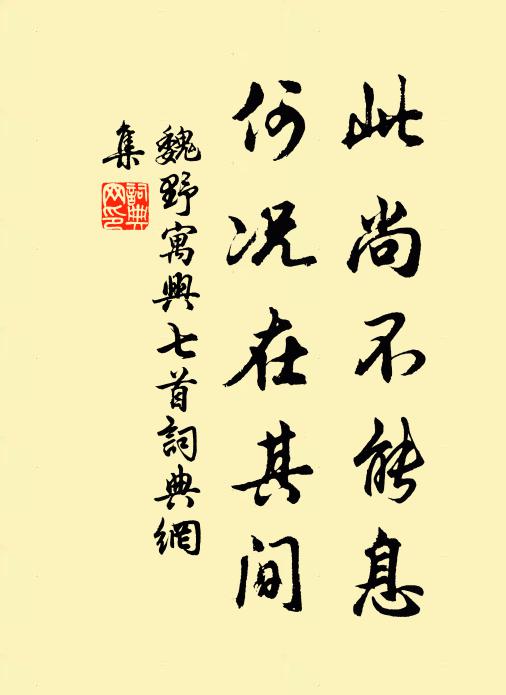 此尚不能息
何况在其间
魏野寓興七首詞典網
集
詞典网印